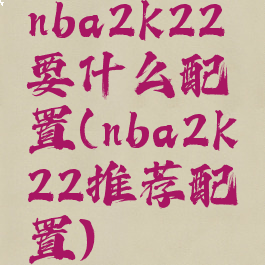 nba2k22
要什么配
置(nba2k
22推荐配
置)